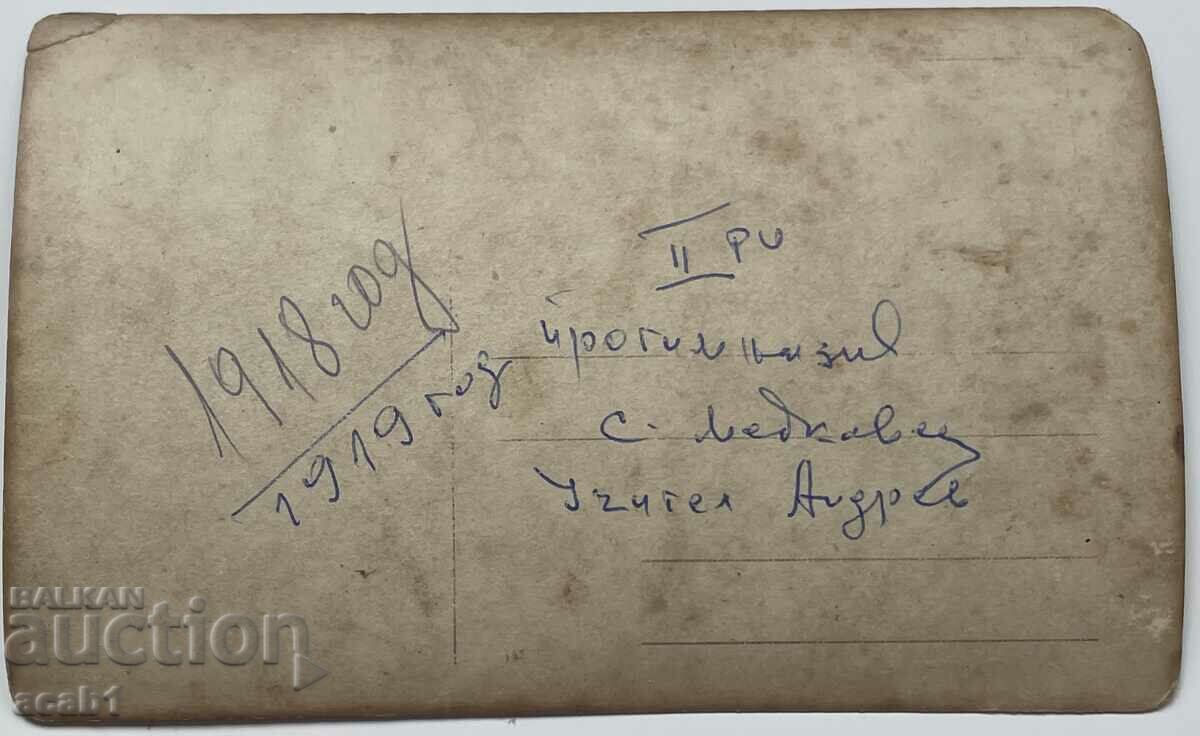 1918 год
1919 год
II РИ
прогимназия
с. Медковец
Учител Андрее
BALKAN
auction
acab1